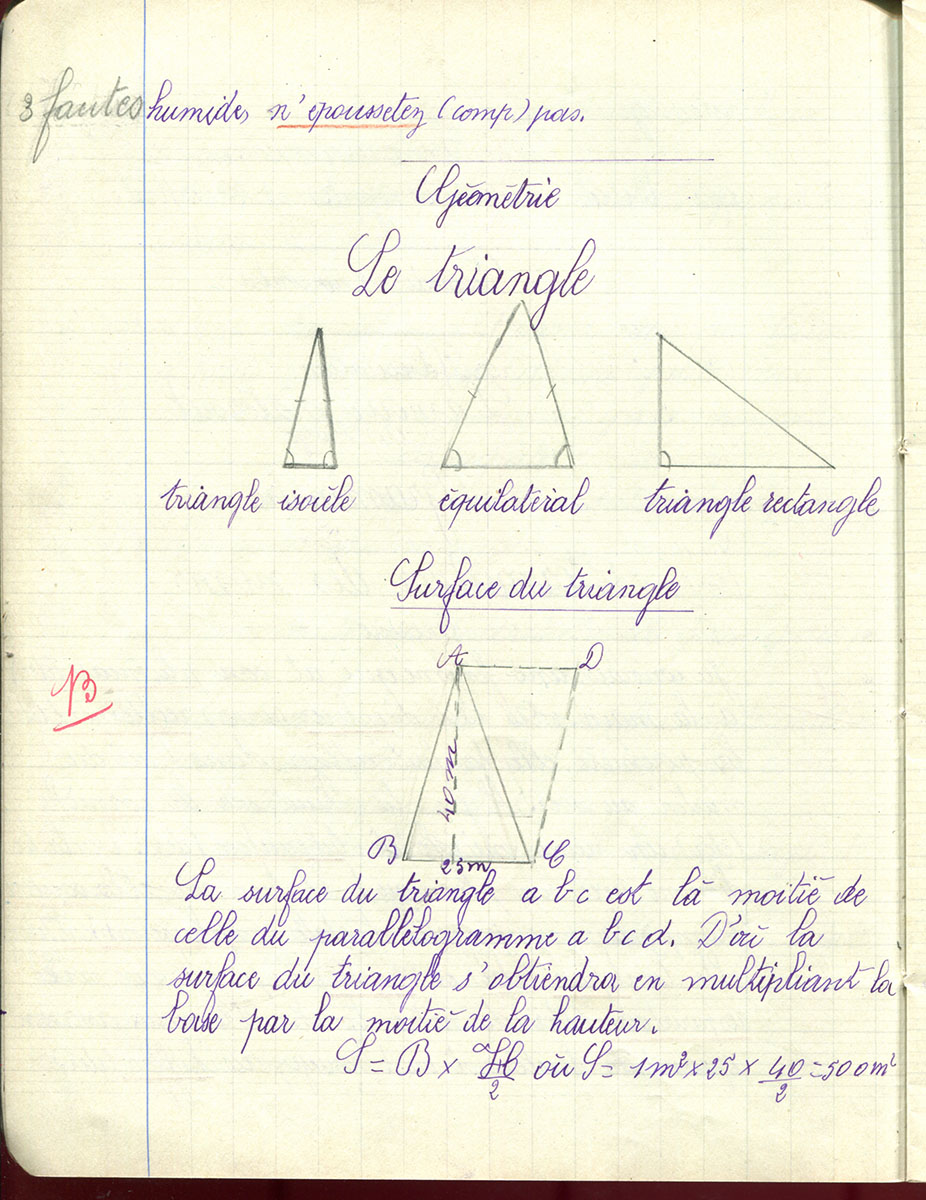 3 fautes humide, n'epoussetez (comp) pas.
Géométrie
Le triangle
triangle isocèle équilatéral triangle rectangle
Surface du triangle
A D
B
40 m
B C
25m
La surface du triangle a b c est là moitié de
celle du parallélogramme a b c d. D'où la
surface du triangle s'obtiendra en multipliant la
base par la moitié de la hauteur.
S = B × H/2 où S = 1m² × 25 × 40/2 = 500m²